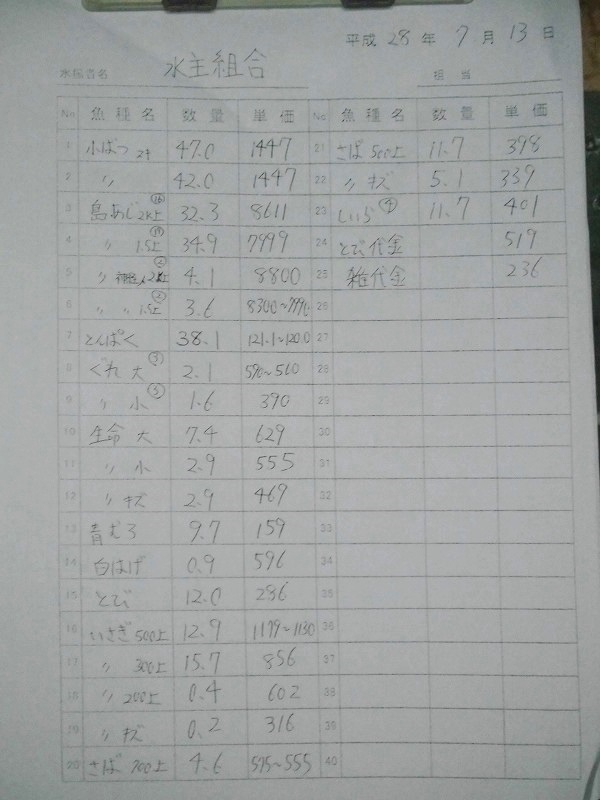 平成 28 年 7 月 13 日
水揚者名 水主組合 担当
No 魚種名 数量 単価 No 魚種名 数量 単価
1 小ばつ 2キ 47.0 1447 21 さば 500上 11.7 398
2 〃 42.0 1447 22 〃 キズ 5.1 339
3 島あじ 2K上 32.3 8611 23 しいら ④ 11.7 401
4 〃 1.5上 34.9 7999 24 とび代金 519
5 〃 2K上 4.1 8800 25 雑代金 236
6 〃 〃 1.5上 ② 3.6 8300~ 26
7 とんぱく 38.1 121.1~120.0 27
8 ぐれ 大 ③ 2.1 590~560 28
9 〃 小 ⑤ 1.6 390 29
10 生命 大 7.4 629 30
11 〃 小 2.9 555 31
12 〃 キズ 2.9 469 32
13 青むろ 9.7 159 33
14 白はげ 0.9 596 34
15 とび 12.0 286 35
16 いさぎ 500上 12.9 1199~1130 36
17 〃 300上 15.7 856 37
18 〃 200上 0.4 602 38
19 〃 キズ 0.2 316 39
20 さば 700上 4.6 595~555 40